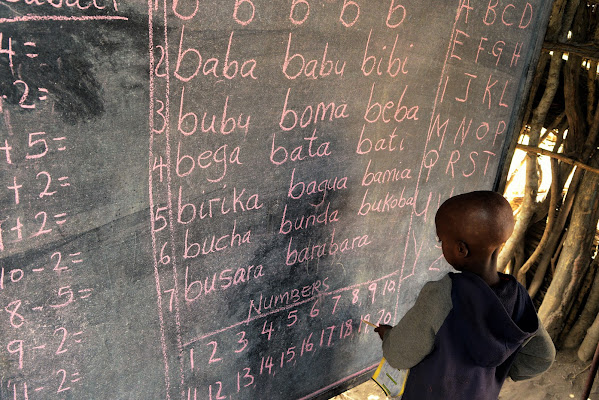 4 =
2 =
+ 5 =
+ 2 =
+ 2 =
10 - 2 =
8 - 5 =
9 - 2 =
11 - 2 =
b b b b b
2 baba babu bibi
3 bubu boma beba
4 bega bata bati
5 birika bagua bamia
6 bucha bunda bukoba
7 busara barabara
NUMBERS
1 2 3 4 5 6 7 8 9 10
11 12 13 14 15 16 17 18 19 20
A B C D
E F G H
I J K L
M N O P
Q R S T
U
Y Z